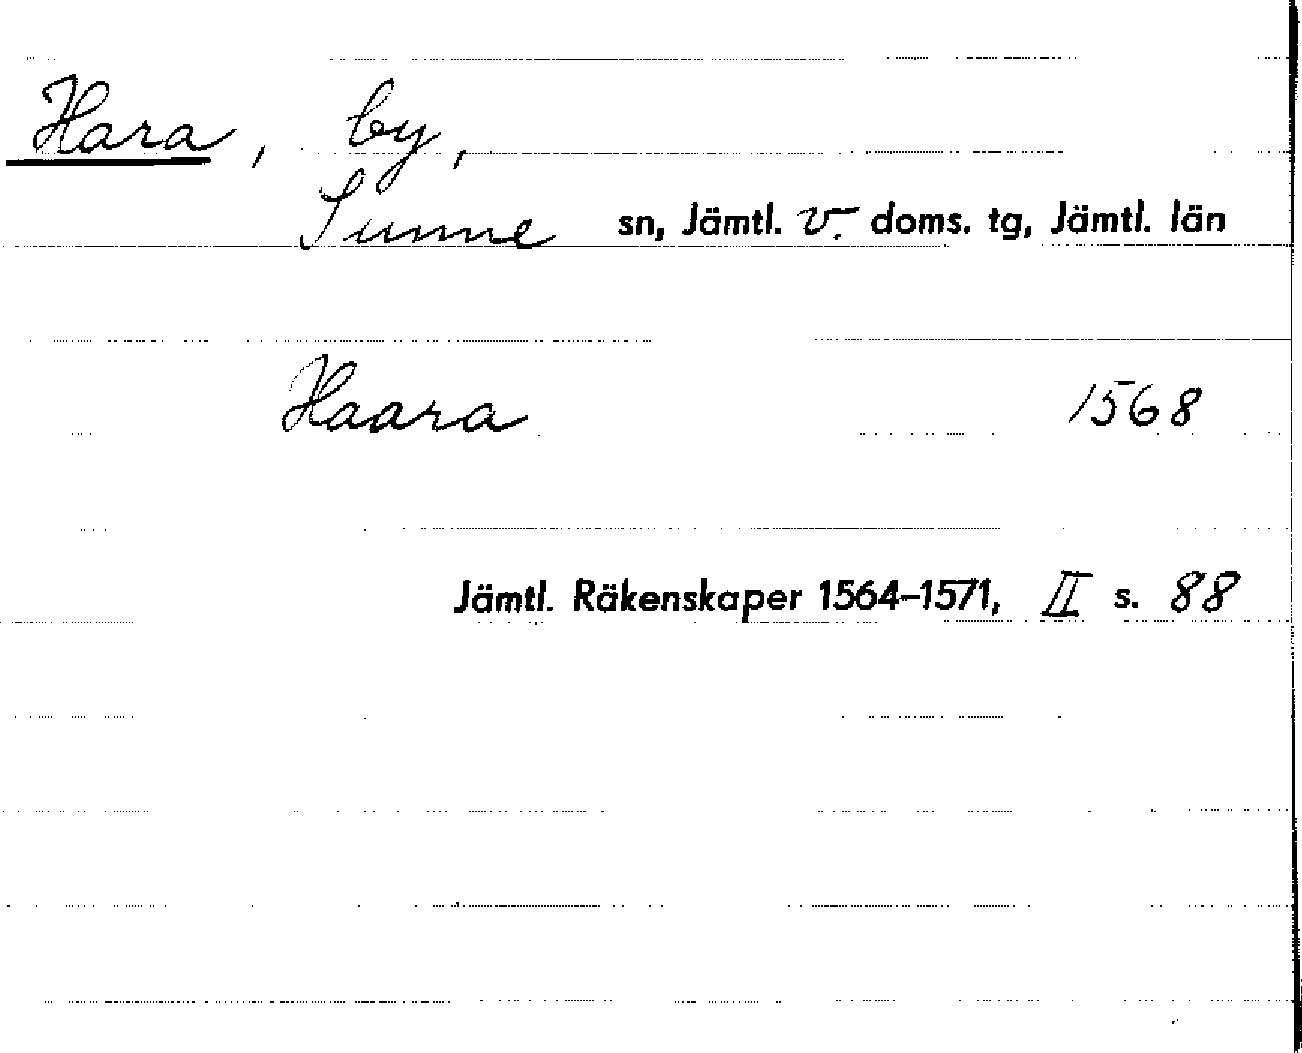 Hara, by,
Sunne sn, Jämtl. v. doms. tg, Jämtl. län
Haara 1568
Jämtl. Räkenskaper 1564–1571, II s. 88